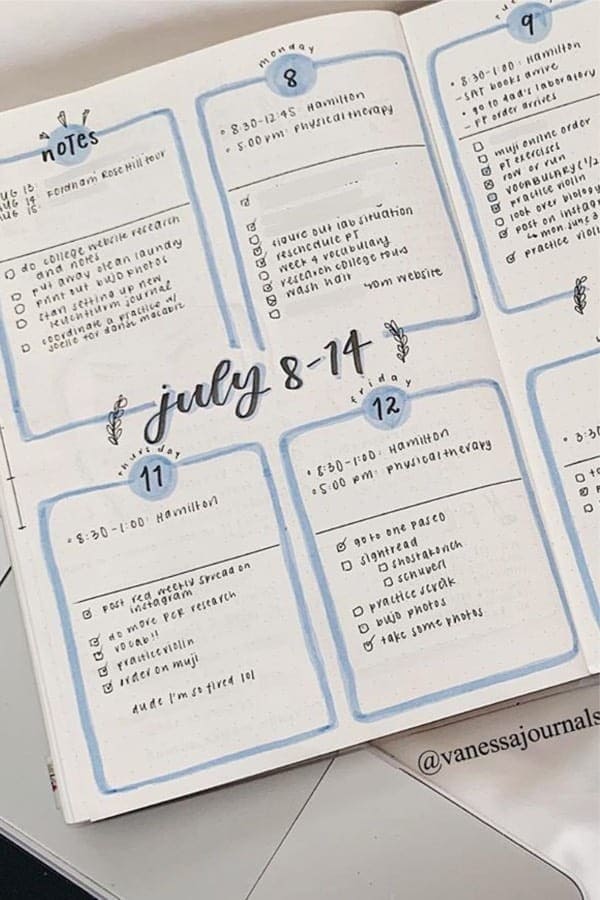 notes
AUG 13:
AUG 14: Fordham Rose Hill tour
AUG 15:
do college website research
and notes
put away clean laundry
print out bujo photos
start setting up new
leuchtturm journal
coordinate a practice w/
joelle for danse macabre
monday
8
8:30-12:45: Hamilton
5:00 pm: physical therapy
figure out lab situation
reschedule PT
week 4 vocabulary
research college tours
wash hair
yom website
9
8:30-1:00: Hamilton
- SAT books arrive
go to dad's laboratory
- PT order arrives
muji online order
PT exercises
row or run
vocabulary (1/2
practice violin
look over biology
post on instag
mon june 3
practice viol
july 8-14
thursday
11
8:30-1:00: Hamilton
post red weekly spread on
instagram
do more PCR research
vocab!!
practice violin
order on muji
dude I'm so tired lol
friday
12
8:30-1:00: Hamilton
5:00 pm: physical therapy
go to one paseo
sightread
shostakovich
schubert
practice
bujo photos
take some photos
3:30
@vanessajournals